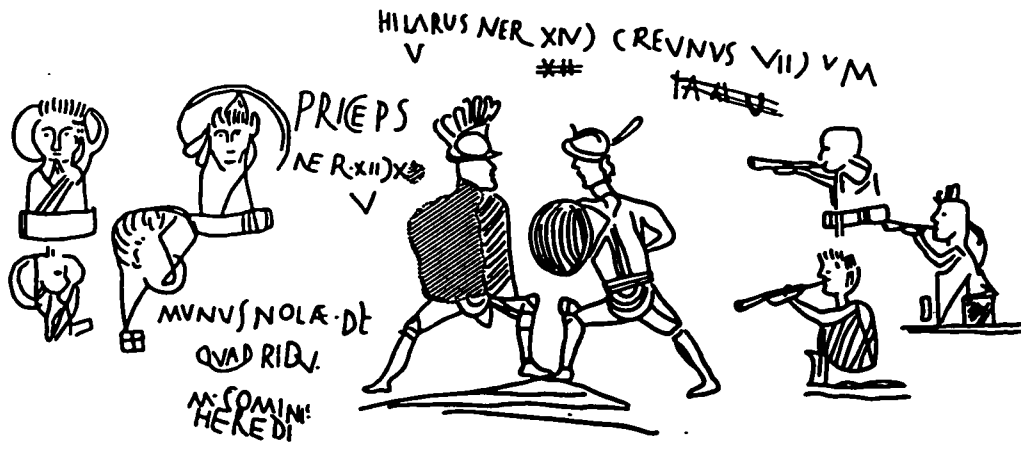 HILARUS NER XIV) CREVNVS VII) V M
V
PRICEPS
NE R·XII)X
V
MUNUS NOLÆ·DE
QVAD RIDV.
M·SOMINI:
HEREDI